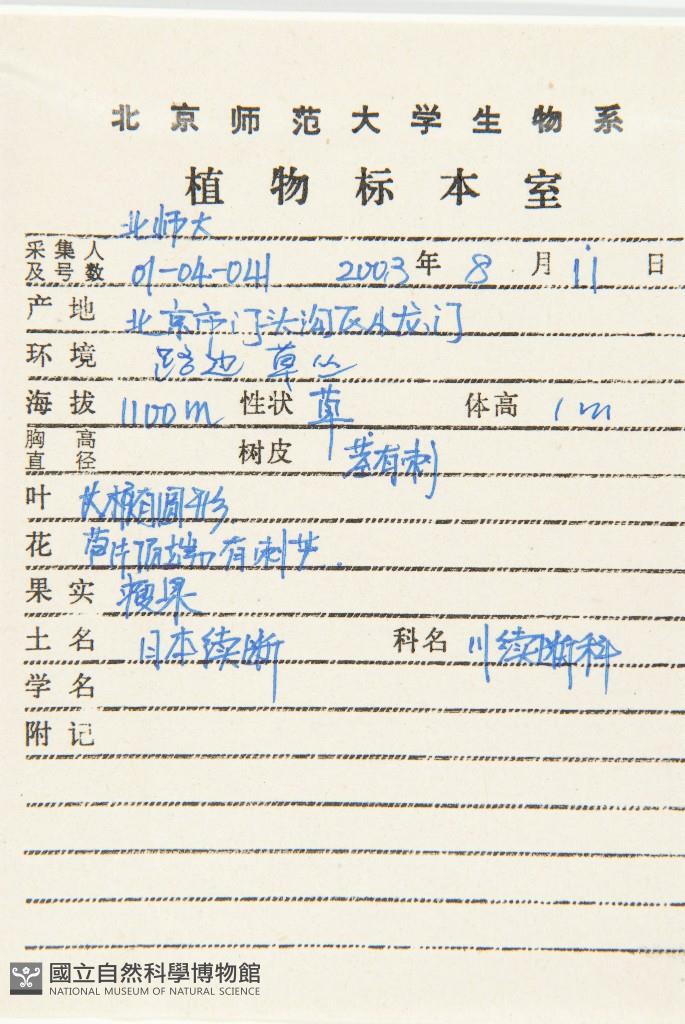 北京师范大学生物系
植物标本室
北师大
采集人
及号数 01-04-041 2003年8月11日
产地 北京市门头沟区小龙门
环境 路边 草丛
海拔 1100m 性状 草 体高 1m
胸高
直径 树皮 茎有刺
叶 长椭圆形
花 苞片顶端有刺芒.
果实 瘦果
土名 日本续断 科名 川续断科
学名
附记
國立自然科學博物館
NATIONAL MUSEUM OF NATURAL SCIENCE